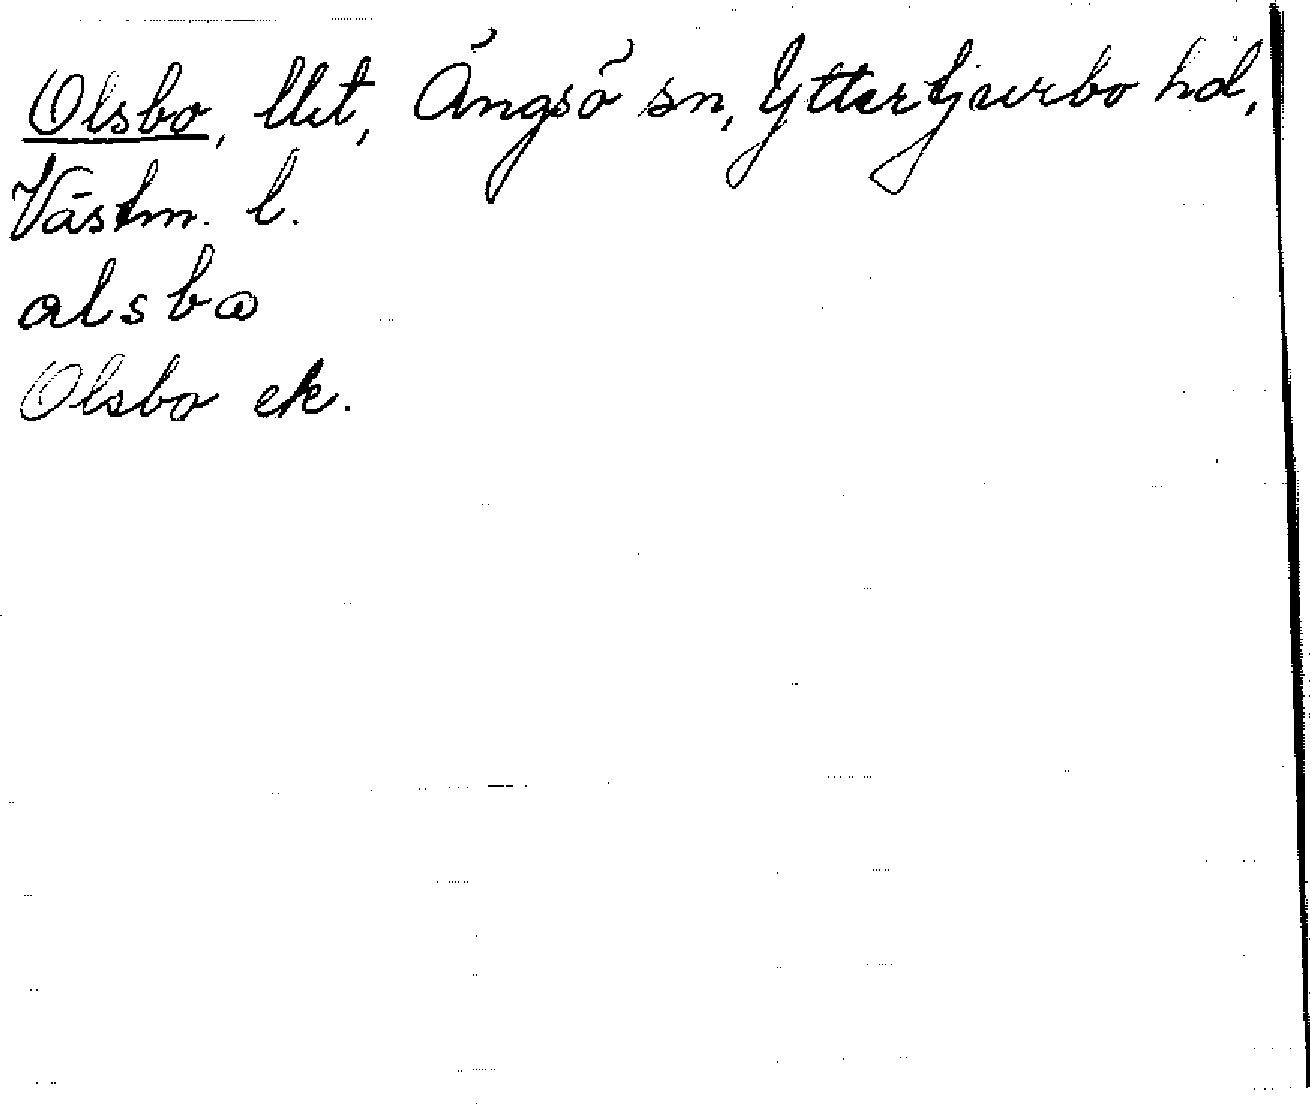 Olsbo, llet, Ängsö sn, Yttertjurbo hd,
Västm. l.
alsbω
Olsbo ek.